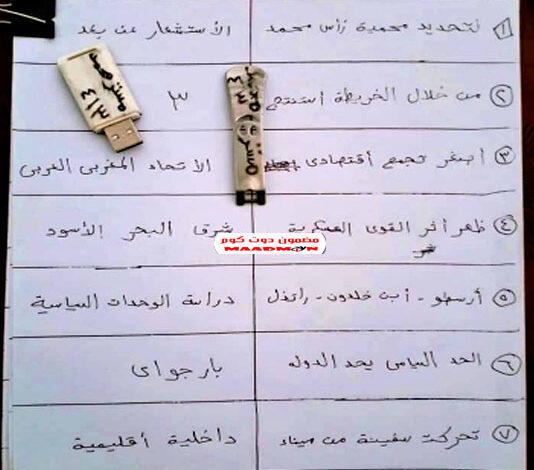 ① لتحديد محمية رأس محمد الأستشعار عن بعد
② من خلال الخريطة أستنتج ٣
③ أصغر تجمع أقتصادى الأتحاد المغربى العربى
④ ظهر أثر القوى العسكرية شرق البحر الأسود
⑤ أرسطو - أبن خلدون - راتزل دراسة الوحدات السياسية
⑥ الحد السياسى يحد الدوله بارجواى
⑦ تحركت سفينة من ميناء داخلية أقليمية
مستر
مستر
مضمون دوت كوم
MAADMOON